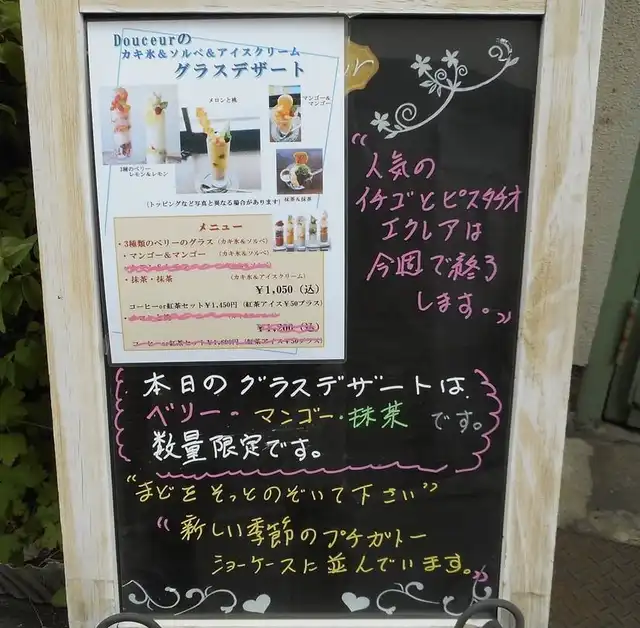 Douceurの
カキ氷&ソルベ&アイスクリーム
グラスデザート
メロンと桃
マンゴー&
マンゴー
3種のベリー
レモン&レモン
抹茶&抹茶
(トッピングなど写真と異なる場合があります)
メニュー
・3種類のベリーのグラス (カキ氷&ソルベ)
・マンゴー&マンゴー (カキ氷&ソルベ)
・抹茶・抹茶 (カキ氷&アイスクリーム)
¥1,050(込)
コーヒーor紅茶セット¥1,450円 (紅茶アイス¥50プラス)
¥1,200(込)
(紅茶アイス¥50プラス)
“人気の
イチゴとピスタチオ
エクレアは
今週で終了
します。”
本日のグラスデザートは、
ベリー・マンゴー・抹茶です。
数量限定です。
“まどをそっとのぞいて下さい”
“新しい季節のプチガトー
ショーケースに並んでいます。”